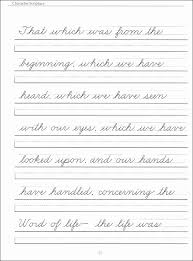 Character Scripture
That which was from the
beginning, which we have
heard, which we have seen
with our eyes, which we have
looked upon, and our hands
have handled, concerning the
Word of life— the life was